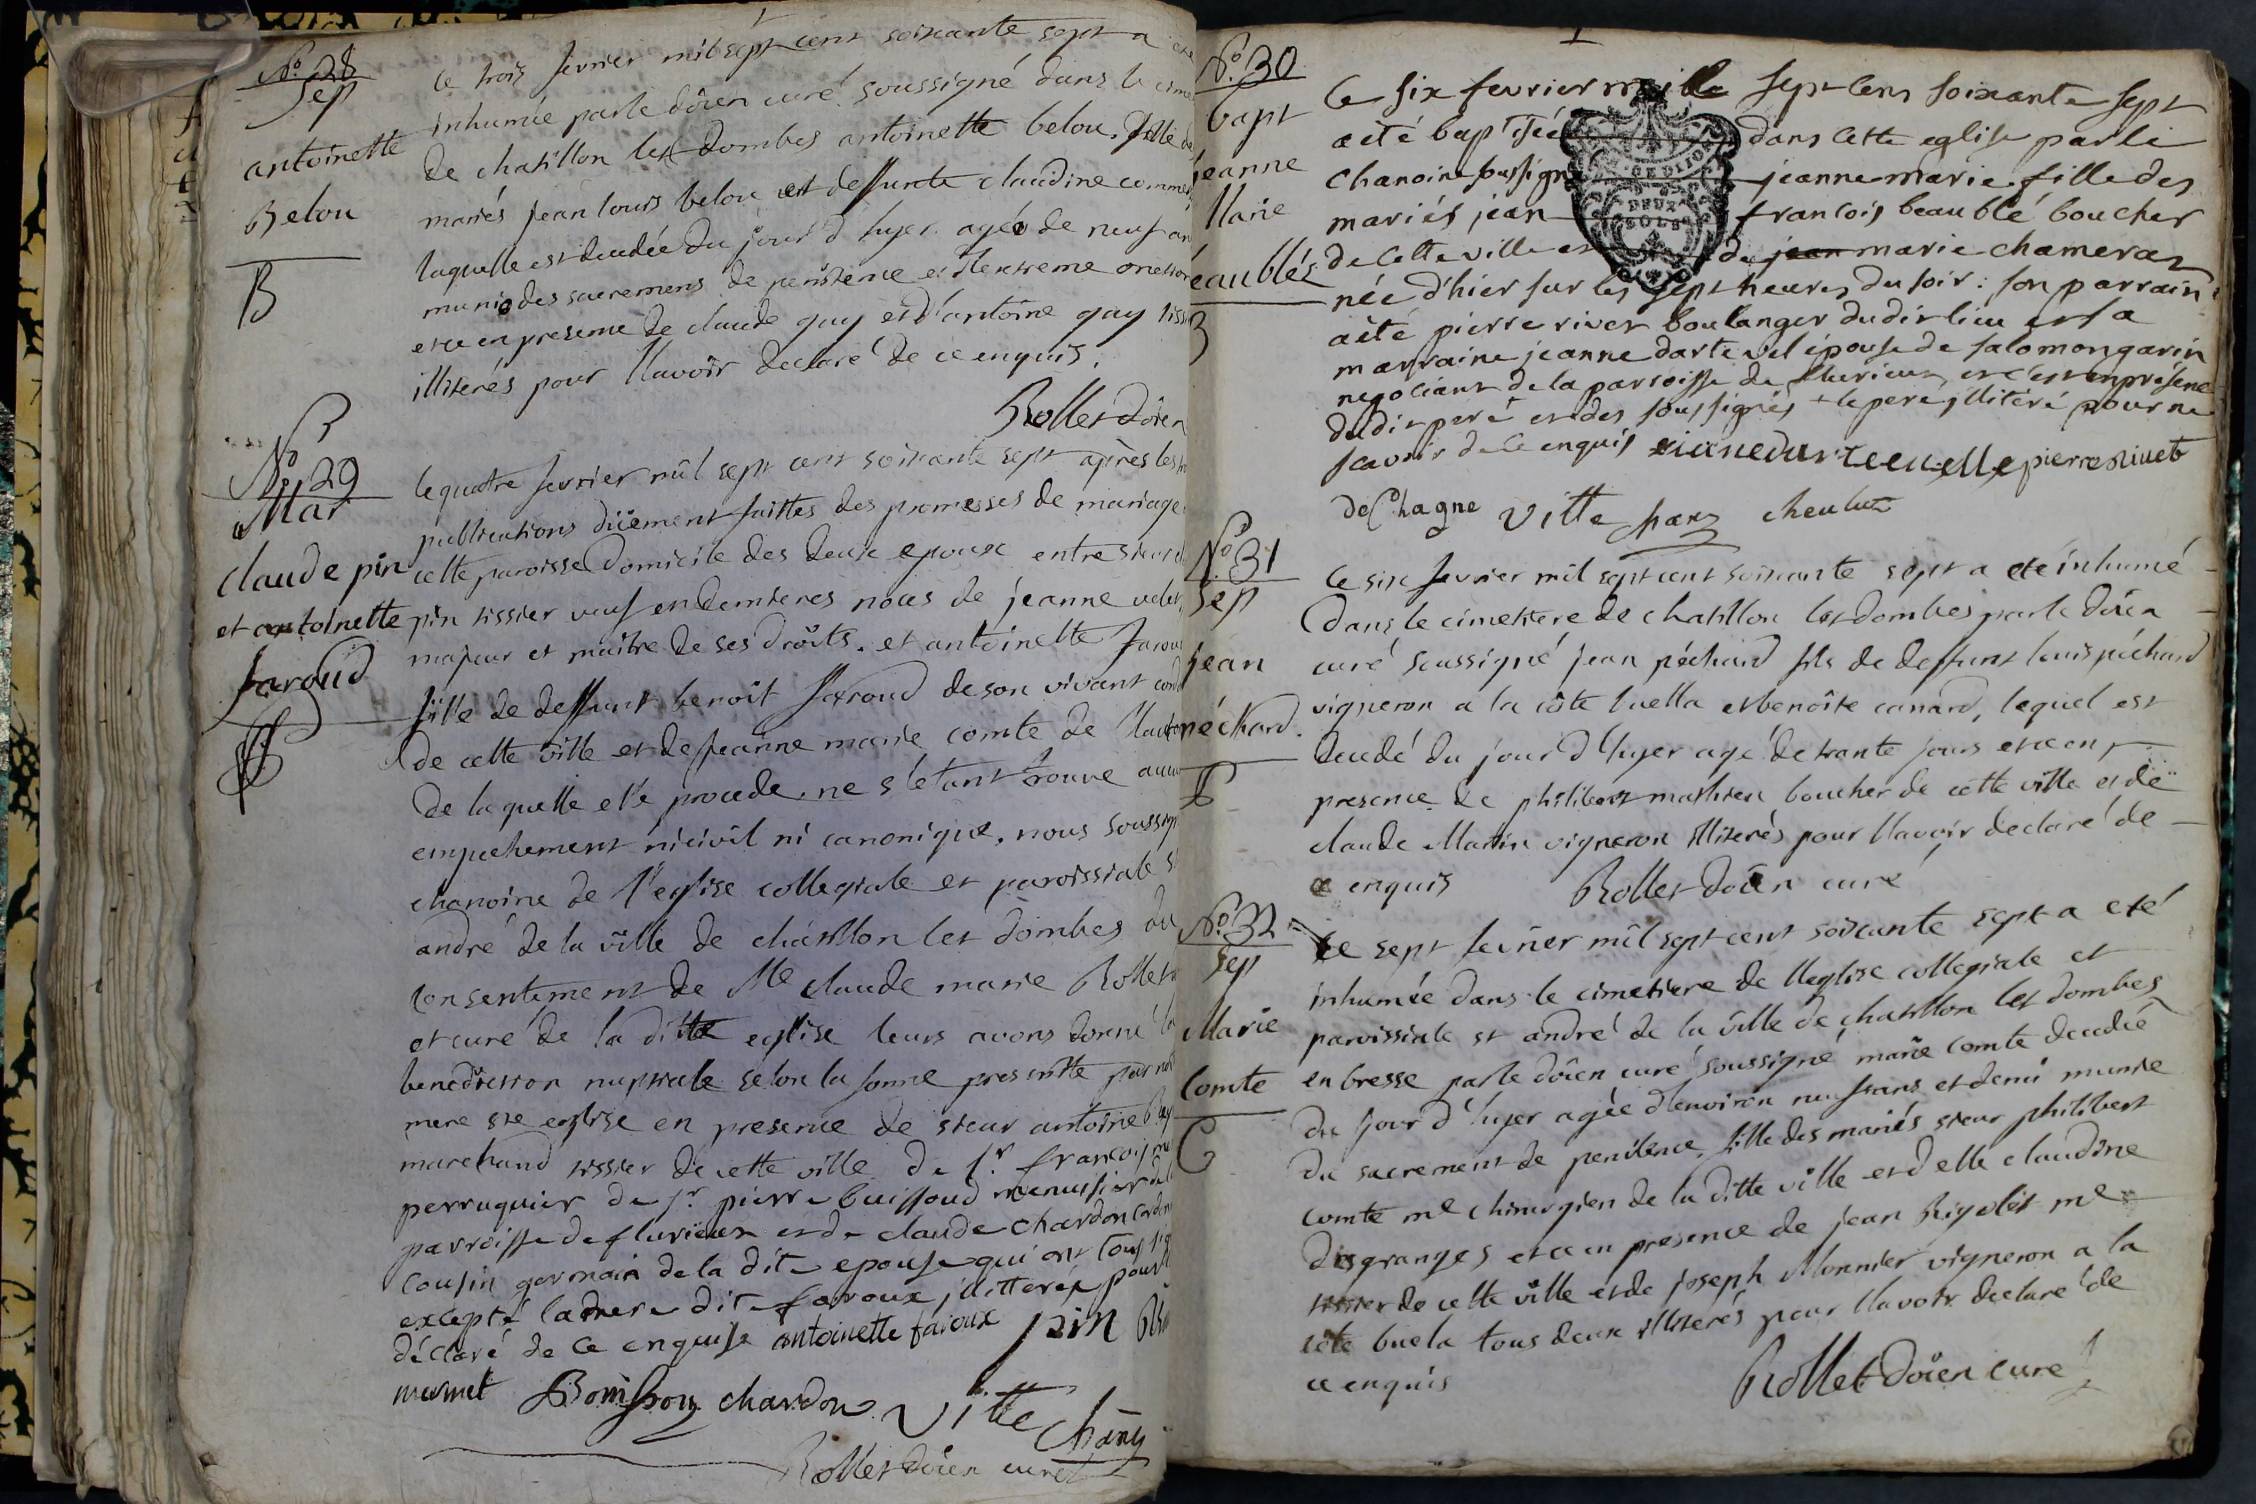 No. 28
Sep
antoinette
Belou
B
le trois fevrier mil sept cent soixante sept a eté
inhumée par le doïen curé soussigné dans le cime
de chatillon les dombes antoinette belou, fille de
mariés jean louis belou et deffunte claudine commer
laquelle est decedée du jour d'hyer agéé de neuf an
munie des sacremens de penitence et d'extreme onction
et ce en presence de claude guy et d'antoine guy tiss
illiterés pour l'avoir declaré de ce enquis.
Rollet doïen
No. 29
Mar
claude pin
et antoinette
faroud
le quatre fevrier mil sept cent soixante sept après les tr
publications düement faittes des promesses de mariage
cette paroisse domicile des deux epoux entre sieur cl
pin tissier veuf en dernieres noces de jeanne velet,
majeur et maître de ses droits. et antoinette farou
fille de deffunt benoît faroud de son vivant cord
de cette ville et de jeanne marie comte de l'auto
de laquelle elle procede, ne s'étant trouvé aucu
empechement ni civil ni canonique, nous soussign
chanoine de l'eglise collegiale et paroissiale st
andré de la ville de châtillon les dombes du
consentement de Me claude marie Rollet
et curé de la ditte eglise leurs avons donné la
benediction nuptiale selon la forme prescritte par not
mere ste eglise en presence de sieur antoine
marchand tissier de cette ville de sr. françois
perruquier de sr. pierre buissoud menuisier de
parroisse de flurieux et de claude chardon cord
cousin germain de la dite epouse qui ont tous sig
excepté la mere dite faroux illitterée pour l
déclaré de ce enquise antoinette faroux pin
mermet Bouissou chardon vitte chāny
Rollet doïen curé
No. 30
bapt
jeanne
Marie
eaublés
B
Ce six fevrier mille sept cens soixante sept
a été baptisée dans cette eglise par le
chanoine soussigné jeanne marie fille des
mariés jean françois beaublé boucher
de cette ville et de jean marie chameran
née d'hier sur les sept heures du soir: son parrain
a été pierre rivet boulanger dudit lieu et sa
marraine jeanne dartevel épouse de salomon garin
negociant de la parroisse de flurieux, et c'est en présence
dudit pere et des soussignés le pere illiteré pour ne
scavoir de ce enquis pierre rivet
de Chagne vitte chany
No. 31
Sep
jean
péchard.
P
le six fevrier mil sept cent soixante sept a eté inhumé
dans le cimetiere de chatillon les dombes par le doïen
curé soussigné jean péchard fils de deffunt louis péchard
vigneron a la côte buella et benoîte canard, lequel est
decedé du jour d'hyer agé de trante jours et ce en
presence de philibert mathieu boucher de cette ville et de
claude Martin vigneron illiterés pour l'avoir declaré de
ce enquis Rollet doïen curé
No. 32
Sep
Marie
Comte
C
le sept fevrier mil sept cent soixante sept a eté
inhumée dans le cimetiere de l'eglise collegiale et
paroissiale st andré de la ville de chatillon les dombes
en bresse par le doïen curé soussigné marie comte decedée
du jour d'hyer agée d'environ neuf ans et demi munie
du sacrement de penitence, fille des mariés sieur philibert
comte me chirurgien de la ditte ville et d elle claudine
desgranges et ce en presence de jean Rigolet me
tissier de cette ville et de joseph Monnier vigneron a la
côte buela tous deux illiterés pour l'avoir declaré de
ce enquis Rollet doïen curé